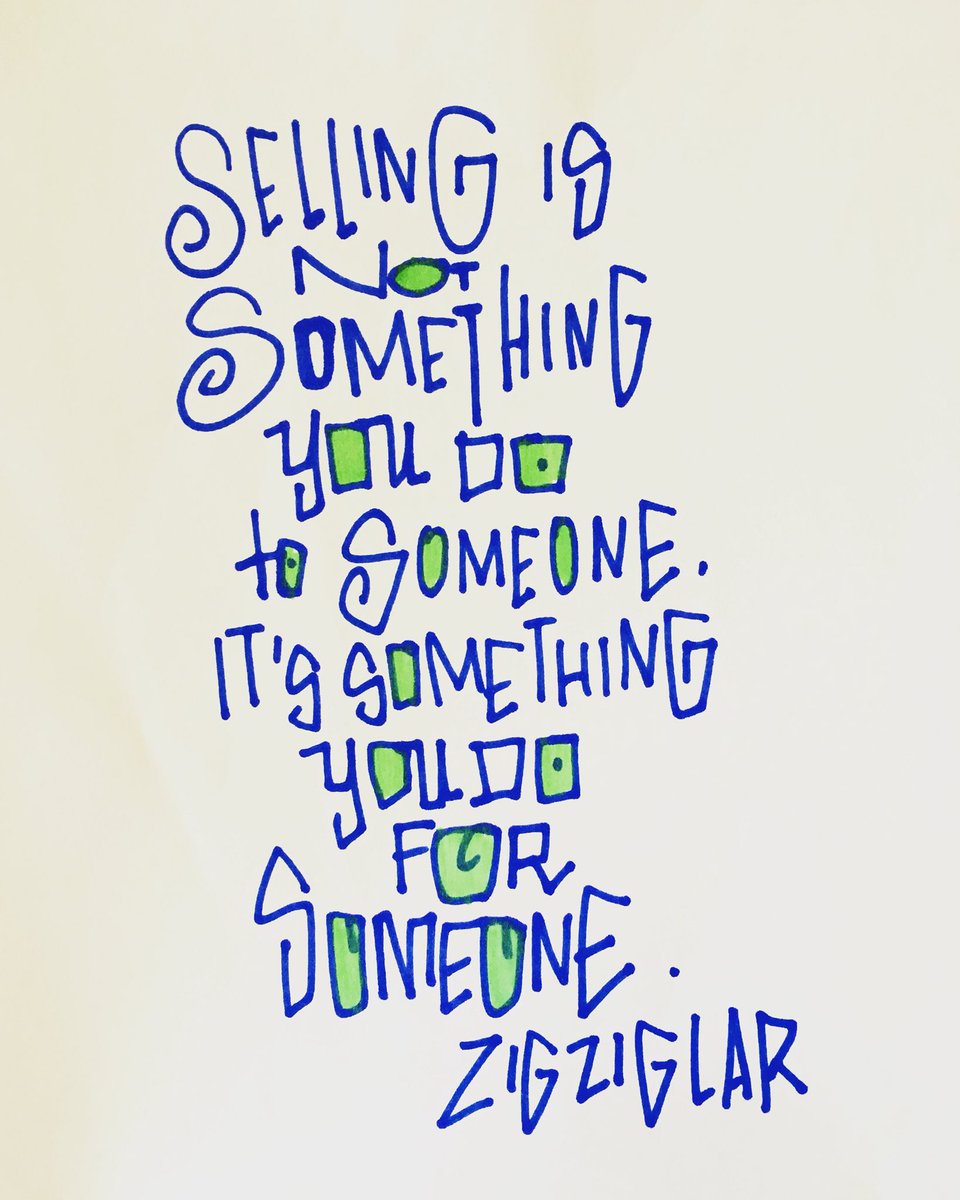 SELLING IS
NOT
SOMETHING
YOU DO
to SOMEONE.
IT'S SOMETHING
YOU DO
FOR
SOMEONE.
ZIG ZIGLAR